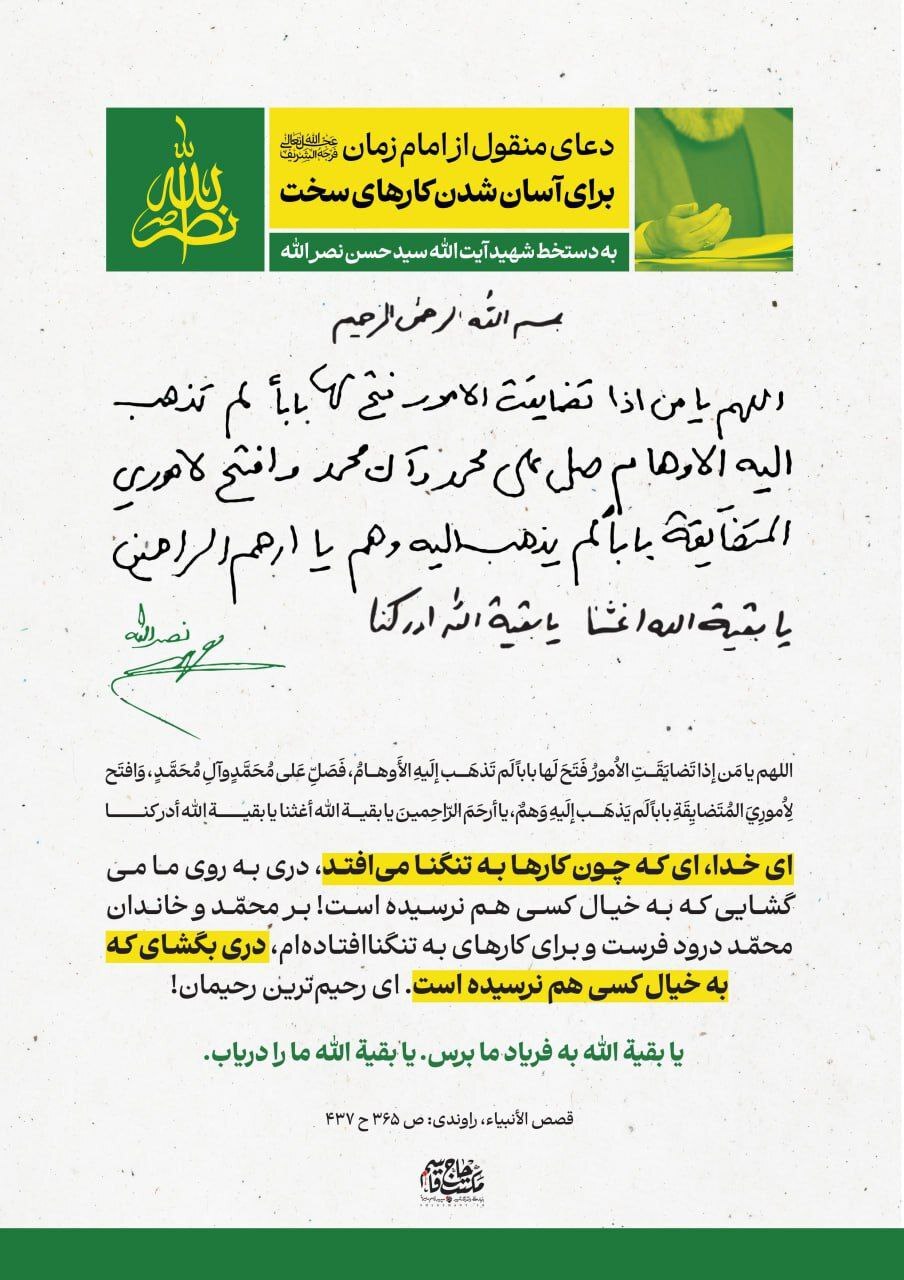 دعای منقول از امام زمان عجل الله تعالی فرجه الشریف
برای آسان شدن کارهای سخت
به دستخط شهید آیت الله سید حسن نصر الله
نصر الله
بسم الله الرحمن الرحیم
اللهم يا من اذا تضايقت الامور فتح لها باباً لم تذهب
اليه الاوهام صل على محمد وآل محمد وافتح لاموري
المتضايقة باباً لم يذهب اليه وهم يا ارحم الراحمين
يا بقية الله اغثنا يا بقية الله ادركنا
نصر الله
اللهم يا مَن إذا تَضايَقَـتِ الاُمورُ فَتَحَ لَها باباً لَم تَذهَـب إلَيهِ الأَوهـامُ، فَصَلِّ عَلى مُحَمَّدٍ وآلِ مُحَمَّدٍ، وَافتَح
لِأُمورِيَ المُتَضايِقَةِ باباً لَم يَذهَـب إلَيهِ وَهمٌ، يا أرحَمَ الرّاحِمينَ يا بقيـة الله أغثنا يا بقيـــة الله أدركنـــا
ای خـدا، ای کـه چـون کارهـا بـه تنگنـا می‌افتـد، دری بـه روی مـا مـی
گشـایی کـه بـه خیـال کسـی هـم نرسـیده اسـت! بـر محمّـد و خاندان
محمّـد درود فرسـت و بـرای کارهای به تنگنا‌افتاده‌ام، دری بگشای که
به خیال کسی هم نرسیده است. ای رحیم‌ترین رحیمان!
یا بقیة الله به فریاد ما برس. یا بقیة الله ما را دریاب.
قصص الأنبیاء، راوندی: ص ۳۶۵ ح ۴۳۷
مکتب حاج قاسم